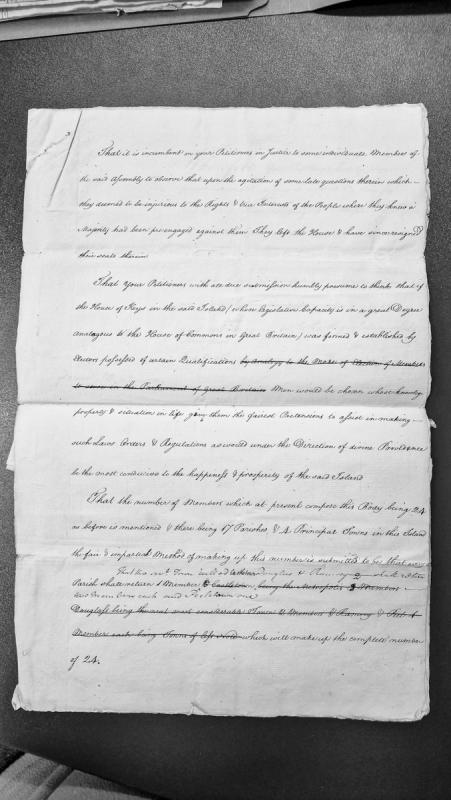 That it is incumbent in your Petitioners in Justice to some individuals Members of
the said Assembly to observe that upon the agitation of some late questions therein which
they deemed to be injurious to the Rights & true Interests of the People where they knew a
Majority had been pre-engaged against them They left the House & have since resigned
their seats therein
That Your Petitioners with all due submission humbly presume to think that if
the House of Keys in the said Island (whose Legislative Capacity is in a great Degree
analagous to the House of Commons in Great Britain) was formed & established by
Electors possessed of certain Qualifications by Analogy to the Mode of Election of Members
to serve in the Parliament of Great Britain Men would be chosen whose knowledge
property & situation in life give them the fairest Pretensions to assist in making
such Laws Orders & Regulations as would under the Direction of divine Providence
be the most conducive to the happiness & prosperity of the said Island
That the number of Members which at present compose this Body being 24
as before is mentioned & there being 17 Parishes & 4 Principal Towns in this Island
the fair & impartial Method of making up this number is submitted to be that every
Douglas & Ramsey 2
Parish shall return 1 Member & Castletown being the Metropolis 3 Members
two Members each and Peeltown one
Douglass being the next most considerable Town 2 Members & Ramsey & Peel 1
Member each being Towns of less Note which will make up the complete number
of 24.